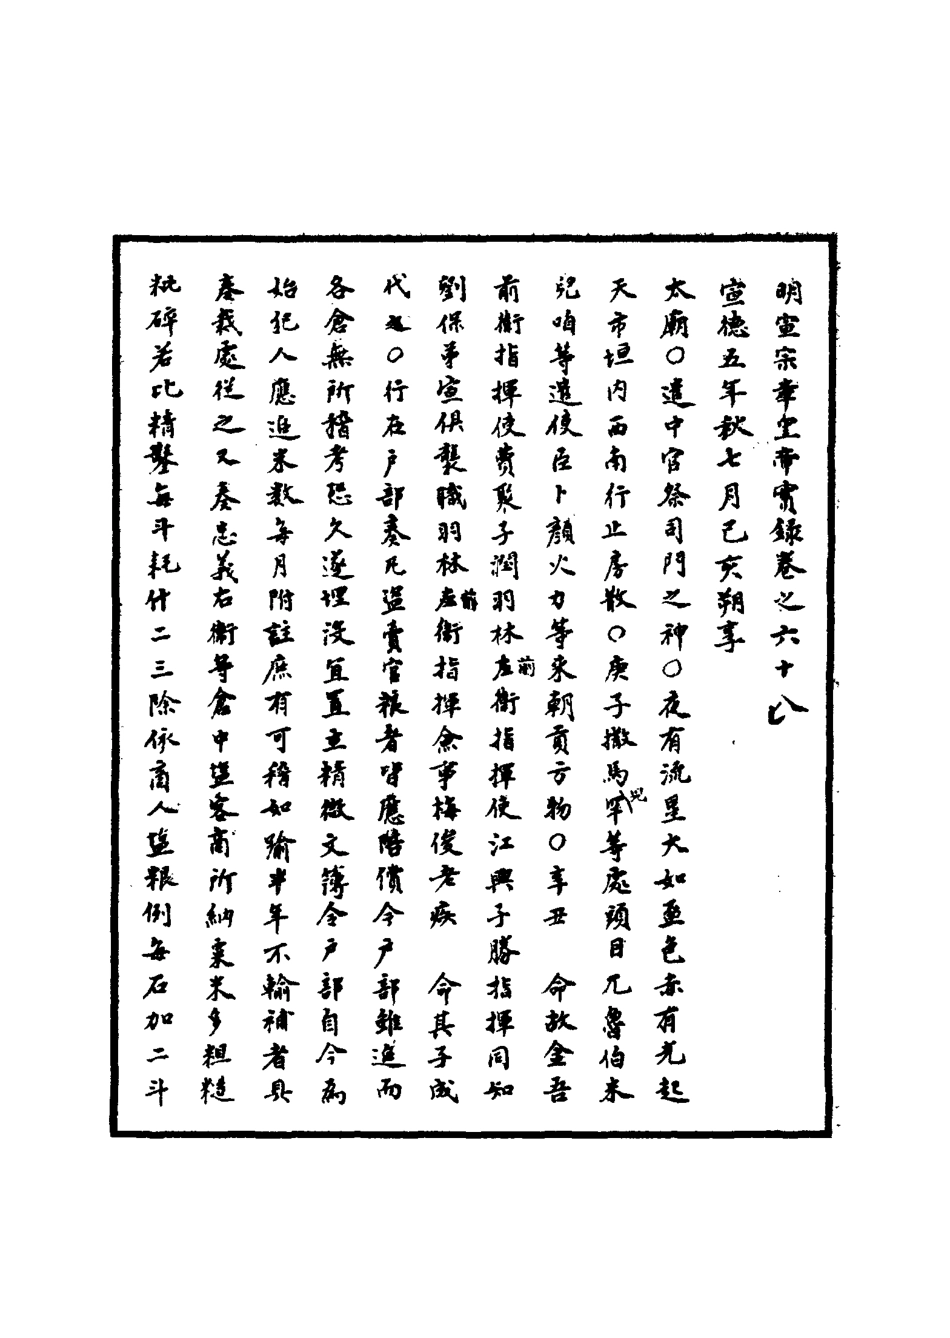 明宣宗章皇帝實錄卷之六十八
宣德五年秋七月己亥朔享
太廟○遣中官祭司門之神○夜有流星大如盃色赤有光起
天市垣內西南行止房散○庚子撒馬兒罕等處頭目兀魯伯米
兒咱等遣使臣卜顏火力等來朝貢方物○辛丑 命故金吾
前衛指揮使費聚子潤羽林前左衛指揮使江興子勝指揮同知
劉保弟宣俱襲職羽林前左衛指揮僉事梅俊老疾 命其子成
代○行在户部奏凡盜賣官粮者皆應陪償今户部雖追而
各倉無所稽考恐久遂埋沒宜置立精微文簿令户部自今為
始犯人應追米數每月附註庶有可稽如踰半年不輸補者具
奏裁處從之又奏忠義右衛等倉中塩客商所納粟米多粗糙
粃碎若比精鑿每斗耗什二三除依商人塩粮例每石加二斗